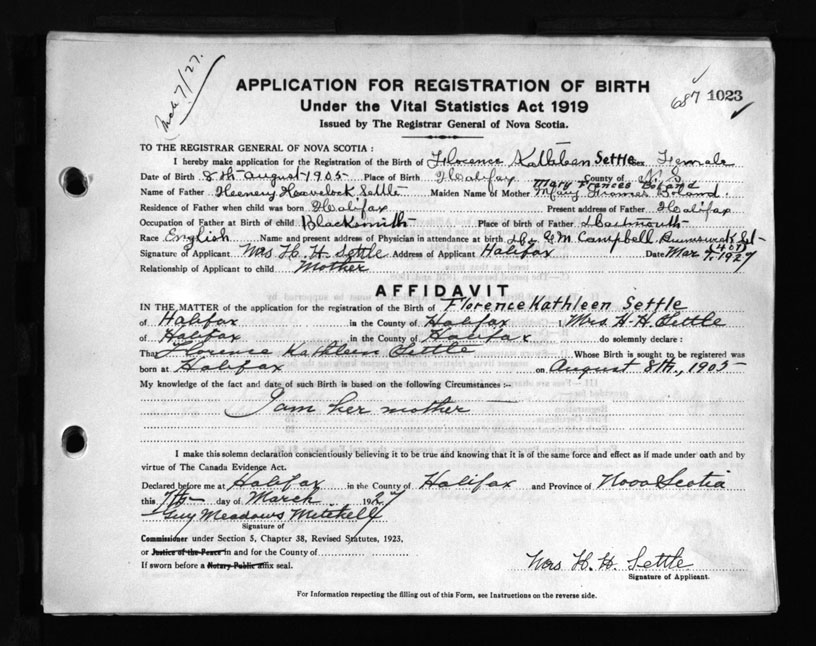 Mch 7/27.
APPLICATION FOR REGISTRATION OF BIRTH
687 1023
Under the Vital Statistics Act 1919
Issued by The Registrar General of Nova Scotia.
TO THE REGISTRAR GENERAL OF NOVA SCOTIA :
I hereby make application for the Registration of the Birth of Florence Kathleen Settle Sex Female
Date of Birth 8th August 1905 Place of Birth Halifax County of N.S.
Mary Frances Boland
Name of Father Henery Havelock Settle Maiden Name of Mother Mary Frances Boland
Residence of Father when child was born Halifax Present address of Father Halifax
Occupation of Father at Birth of child Blacksmith Place of birth of Father Dartmouth
Race English Name and present address of Physician in attendance at birth Dr. G M. Campbell Brunswick St
Signature of Applicant Mrs H. H. Settle Address of Applicant Halifax Date Mar 7, 1927
Relationship of Applicant to child Mother
AFFIDAVIT
IN THE MATTER of the application for the registration of the Birth of Florence Kathleen Settle
of Halifax in the County of Halifax I Mrs H. H. Settle
of Halifax in the County of Halifax do solemnly declare :
That Florence Kathleen Settle Whose Birth is sought to be registered was
born at Halifax on August 8th, 1905
My knowledge of the fact and date of such Birth is based on the following Circumstances :-
I am her mother
I make this solemn declaration conscientiously believing it to be true and knowing that it is of the same force and effect as if made under oath and by
virtue of The Canada Evidence Act.
Declared before me at Halifax in the County of Halifax and Province of Nova Scotia
this 7th day of March 1927
Guy Meadows Mitchell
Signature of
Commissioner under Section 5, Chapter 38, Revised Statutes, 1923,
or Justice of the Peace in and for the County of
If sworn before a Notary Public affix seal.
Mrs H. H. Settle
Signature of Applicant.
For Information respecting the filling out of this Form, see Instructions on the reverse side.